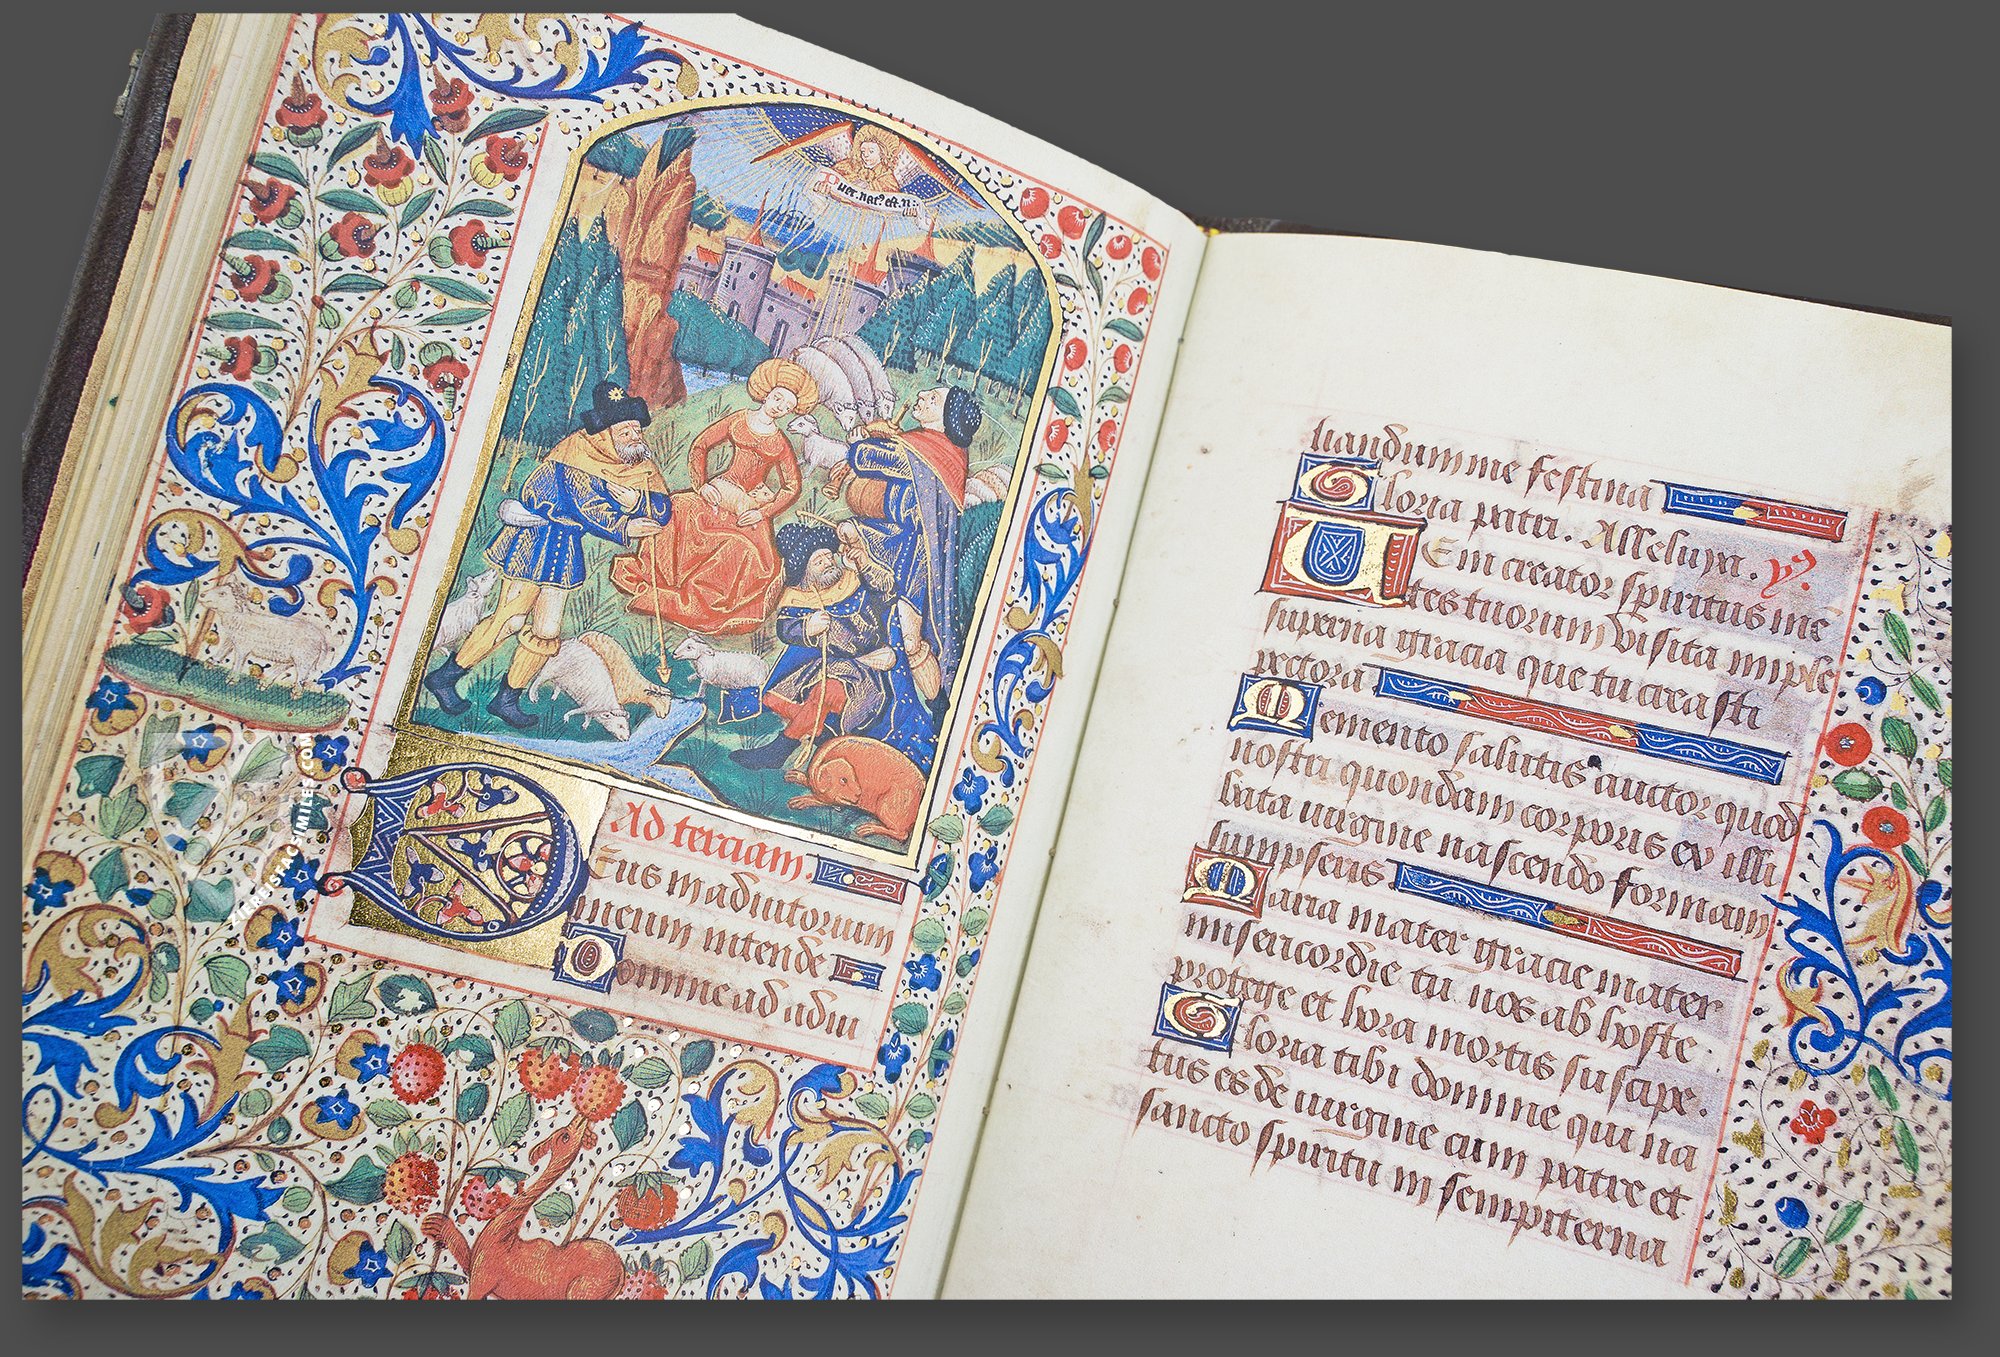 Puer. nat9 est. n
Ad terciam.
Deus in adiutorium
meum intende
Domine ad adiu
ZIEREISFACSIMILES.COM
uandum me festina
Gloria patri. Alleluya. ys.
Ueni creator spiritus mē
tes tuorum visita imple
superna gracia que tu creasti
pectora
Memento salutis auctor quod
nostri quondam corporis ex illi
bata uirgine nascendo formam
sumpseris
Maria mater gracie mater
misericordie tu nos ab hoste
protege et hora mortis suscipe.
Gloria tibi domine qui na
tus es de uirgine cum patre et
sancto spiritu in sempiterna